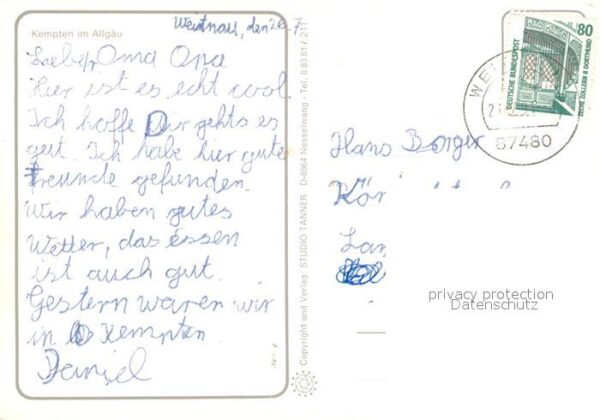 Weitnau, den 26.7
Kempten im Allgäu
Liebe Oma Opa
Hier ist es echt cool.
Ich hoffe Dir gehts es
gut. Ich habe hier gute
freunde gefunden.
Wir haben gutes
Wetter, das essen
ist auch gut.
Gestern waren wir
in Kempten
Daniel
Copyright und Verlag: STUDIO TANNER D-8964 Nesselwang · Tel. 0 83 61 / 211
DEUTSCHE BUNDESPOST
80
ZECHE ZOLLERN II DORTMUND
WE
87480
Hans Borger
Kör
Lan
privacy protection
Datenschutz